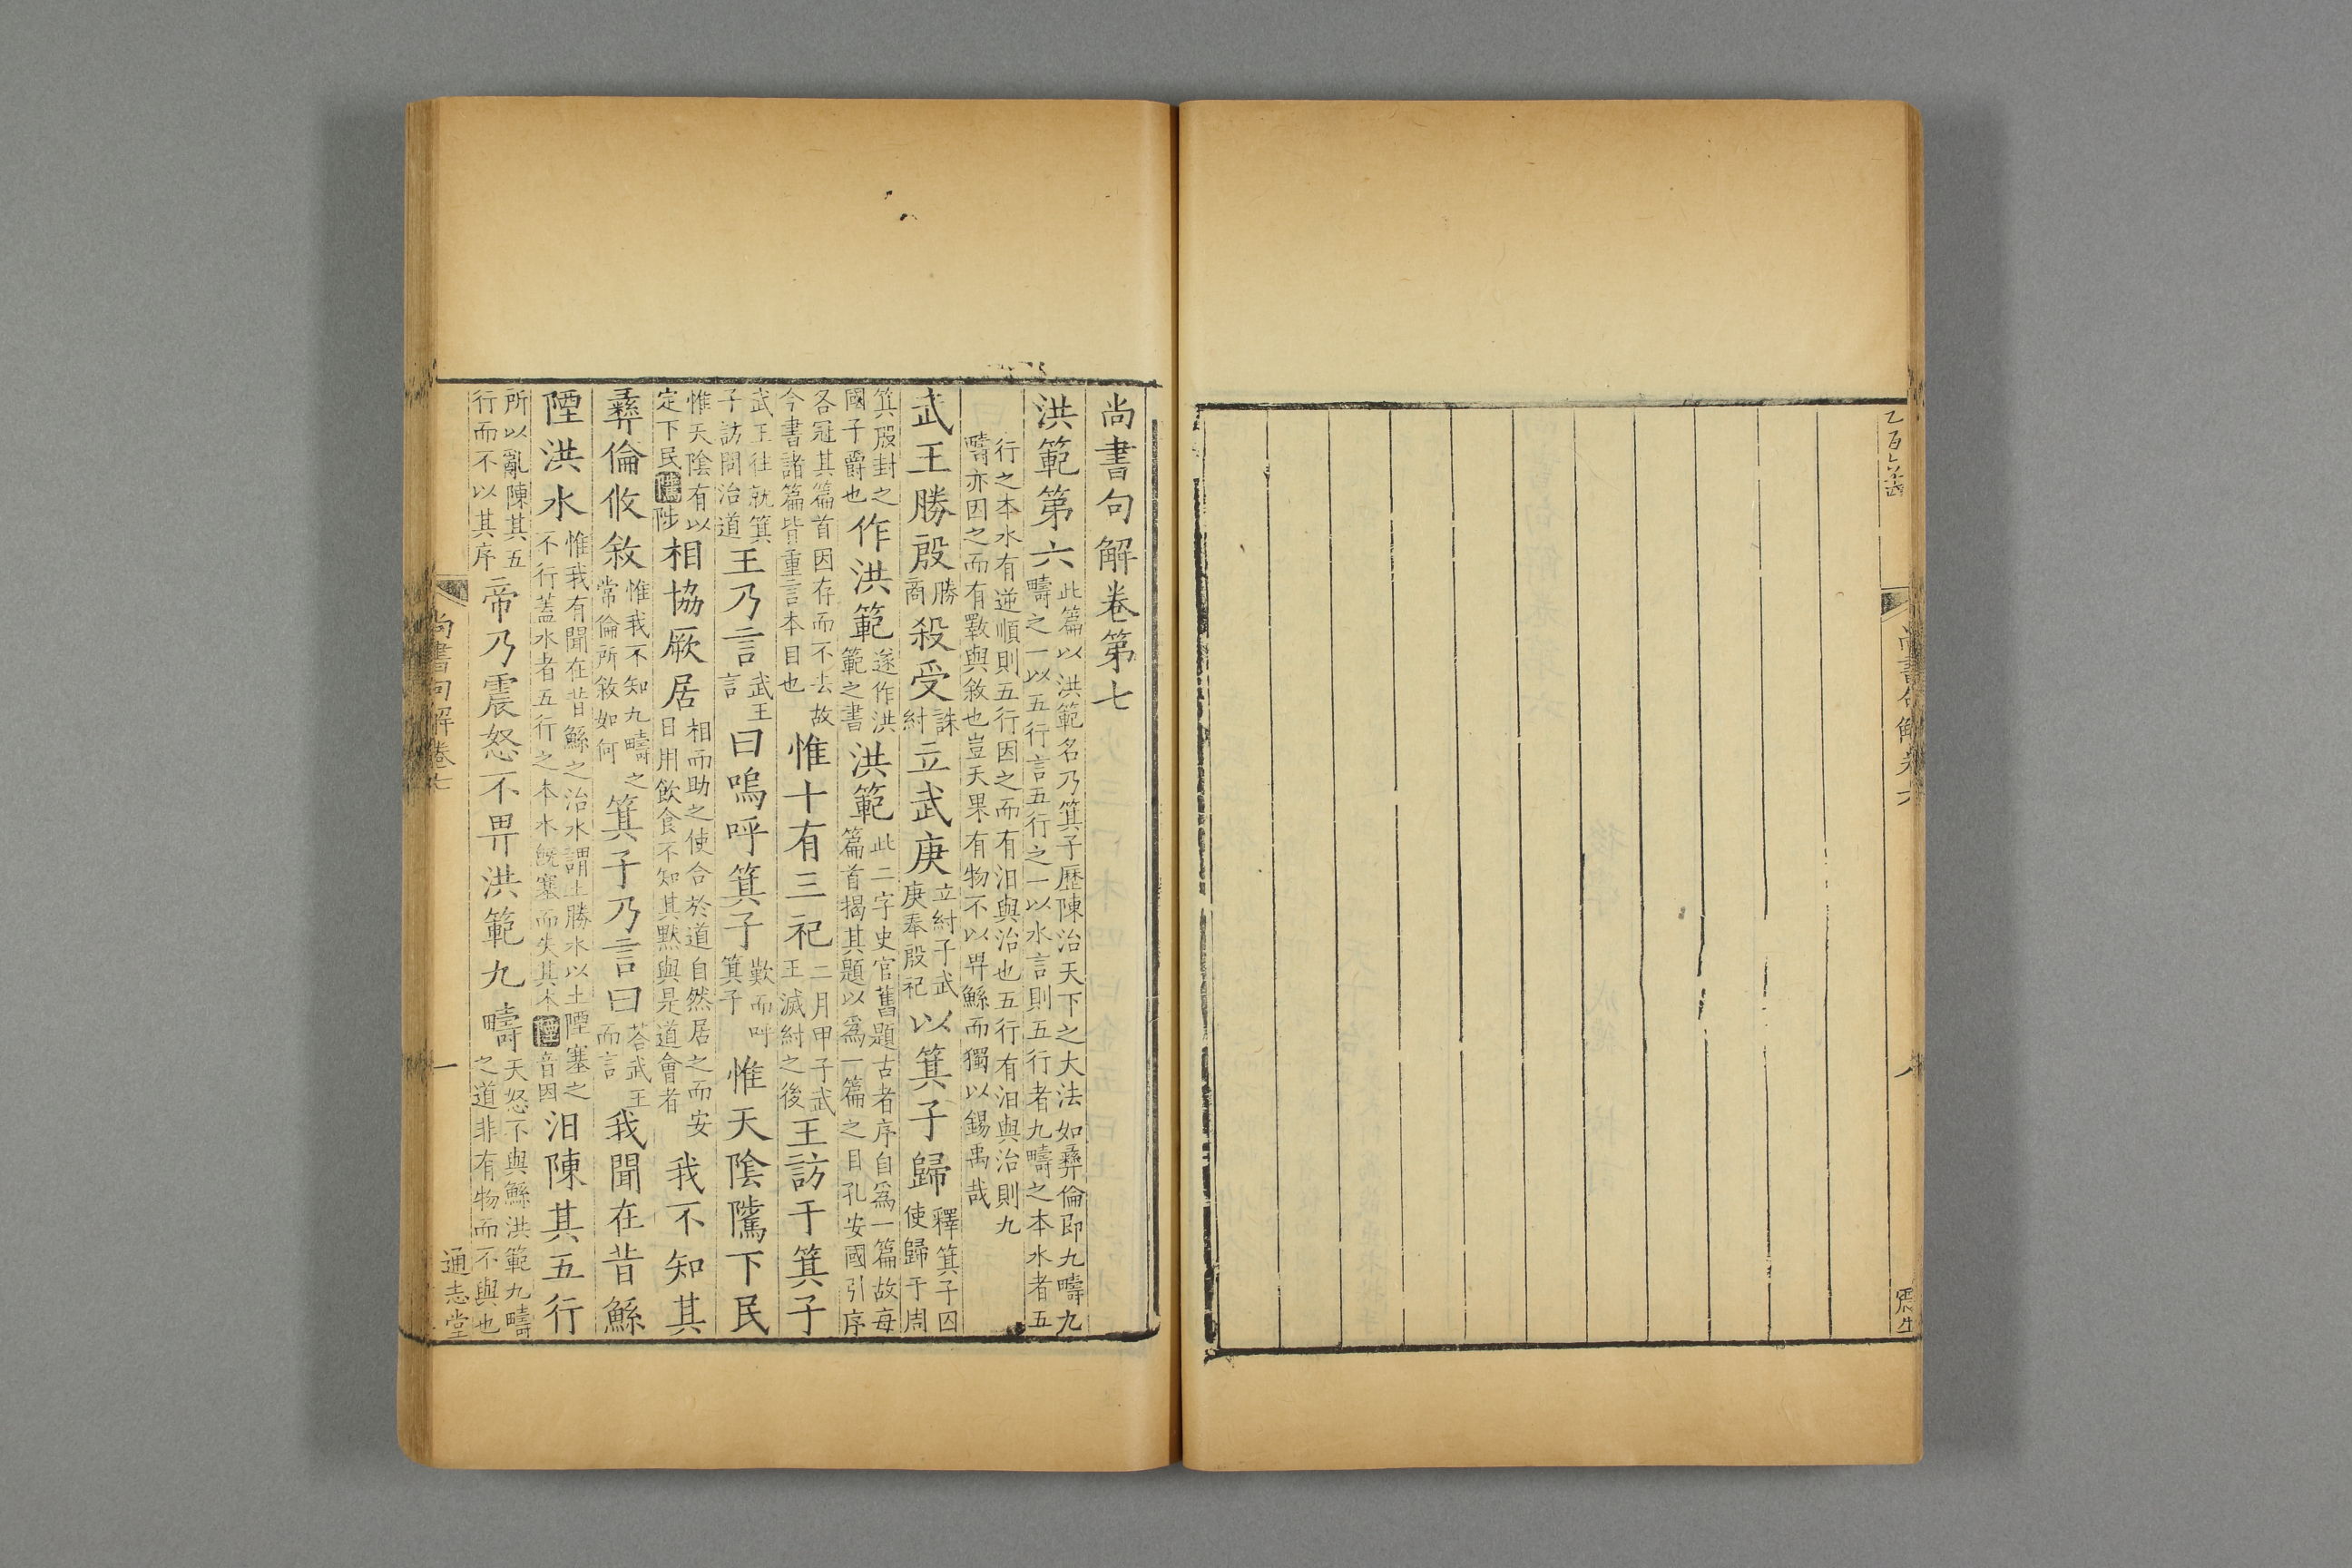 尚書句解卷六
尚書句解卷第七
洪範第六此篇以洪範名乃箕子歷陳治天下之大法如彝倫即九疇九疇之一以五行言五行之一以水言則五行者九疇之本水者五
行之本水有逆順則五行因之而有汨與治也五行有汨與治則九疇亦因之而有斁與敘也豈天果有物不以畀鯀而獨以錫禹哉
武王勝殷勝商殺受誅紂立武庚立紂子武庚奉殷祀以箕子歸釋箕子囚使歸于周
箕殷封之國子爵也作洪範遂作洪範之書洪範此二字史官舊題古者序自爲一篇故每篇首揭其題以爲一篇之目孔安國引序
各冠其篇首因存而不去故今書諸篇皆重言本目也惟十有三祀二月甲子武王滅紂之後王訪于箕子
武王往就箕子訪問治道王乃言武王言曰嗚呼箕子歎而呼箕子惟天陰騭下民
惟天陰有以定下民騭陟相協厥居相而助之使合於道自然居之而安日用飲食不知其默與是道會者我不知其
彝倫攸敘惟我不知九疇之常倫所敘如何箕子乃言曰荅武王而言我聞在昔鯀
陻洪水惟我有聞在昔鯀之治水謂土勝水以土陻塞之不行蓋水者五行之本水既塞而失其本陻音因汨陳其五行
所以亂陳其五行而不以其序帝乃震怒不畀洪範九疇天怒不與鯀洪範九疇之道非有物而不與也
尚書句解卷七
一
通志堂